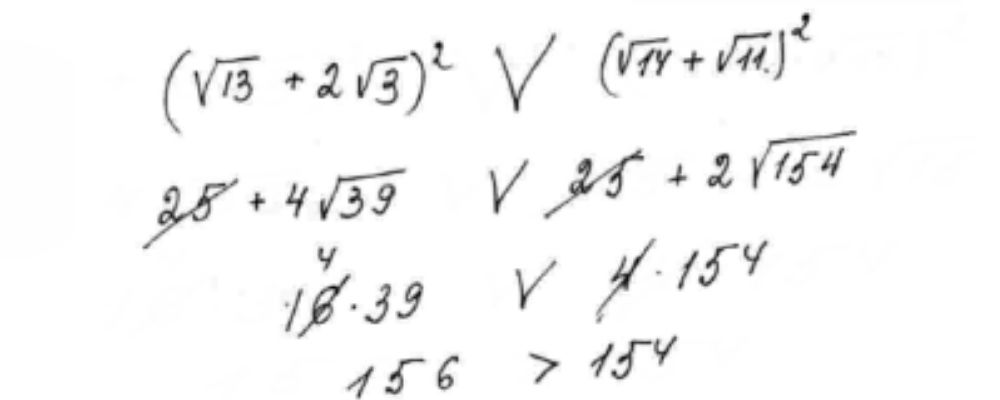 (√13 + 2√3)² V (√14 + √11)²
25 + 4√39 V 25 + 2√154
4
16·39 V 4·154
156 > 154